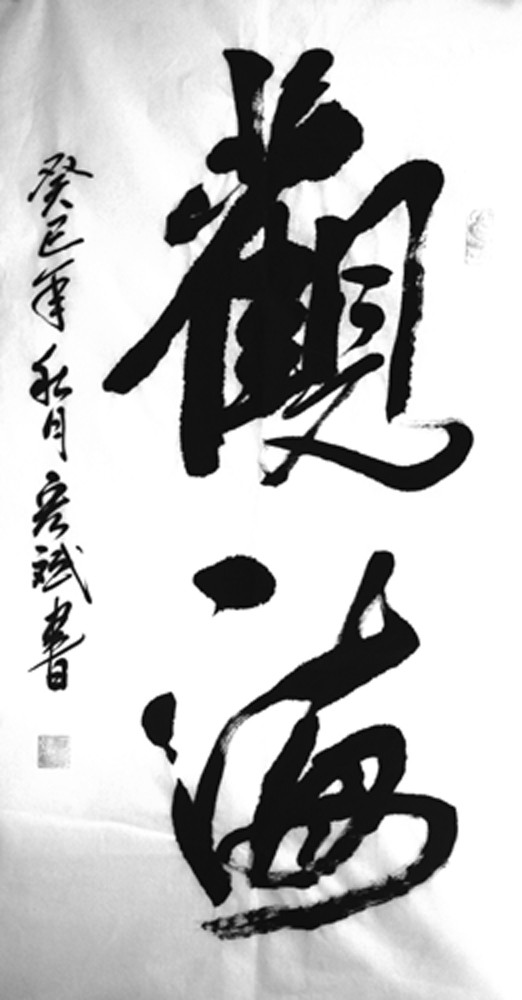 觀海
癸巳年秋月彦斌書